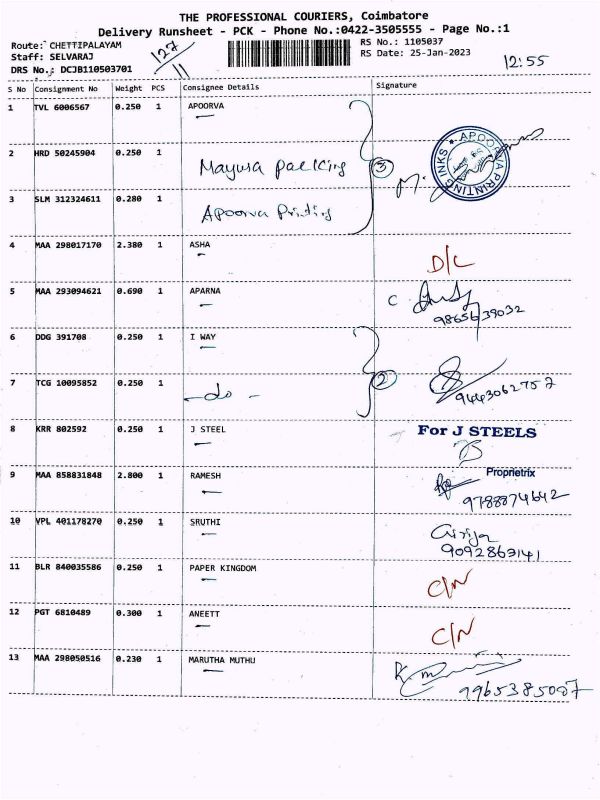 THE PROFESSIONAL COURIERS, Coimbatore
Delivery Runsheet - PCK - Phone No.:0422-3505555 - Page No.:1
Route: CHETTIPALAYAM RS No.: 1105037
Staff: SELVARAJ RS Date: 25-Jan-2023
DRS No.: DCJB110503701
127/11
12:55
S No Consignment No Weight PCS Consignee Details Signature
1 TVL 6006567 0.250 1 APOORVA
2 HRD 50245904 0.250 1 Mayura packing
3 SLM 312324611 0.280 1 Apoorva Printing
③
APOORVA PRINTING INKS
4 MAA 298017170 2.380 1 ASHA D/C
5 MAA 293094621 0.690 1 APARNA
9865639032
6 DDG 391708 0.250 1 I WAY
7 TCG 10095852 0.250 1 - do - ② 9443062757
8 KRR 802592 0.250 1 J STEEL For J STEELS
Proprietrix
9 MAA 858831848 2.800 1 RAMESH
9788874642
10 VPL 401178270 0.250 1 SRUTHI Girija
9092863141
11 BLR 840035586 0.250 1 PAPER KINGDOM C/N
12 PGT 6810489 0.300 1 ANEETT C/N
13 MAA 298050516 0.230 1 MARUTHA MUTHU